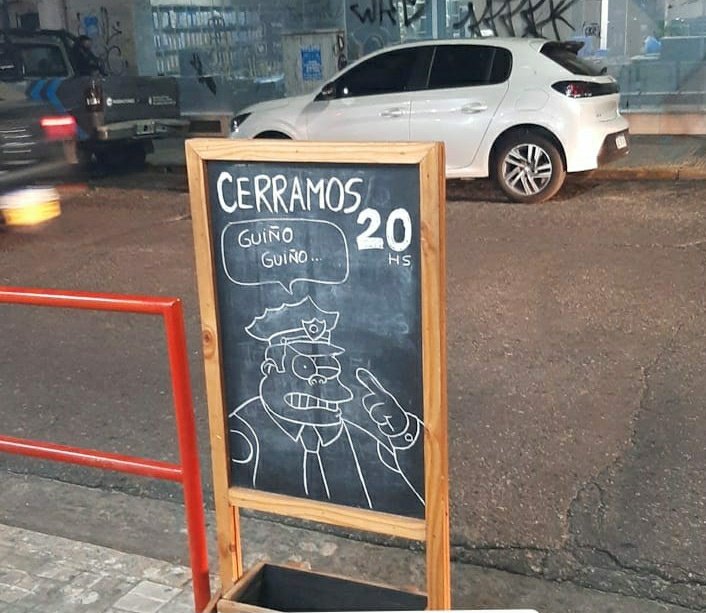 CERRAMOS
20
HS
GUIÑO
GUIÑO...